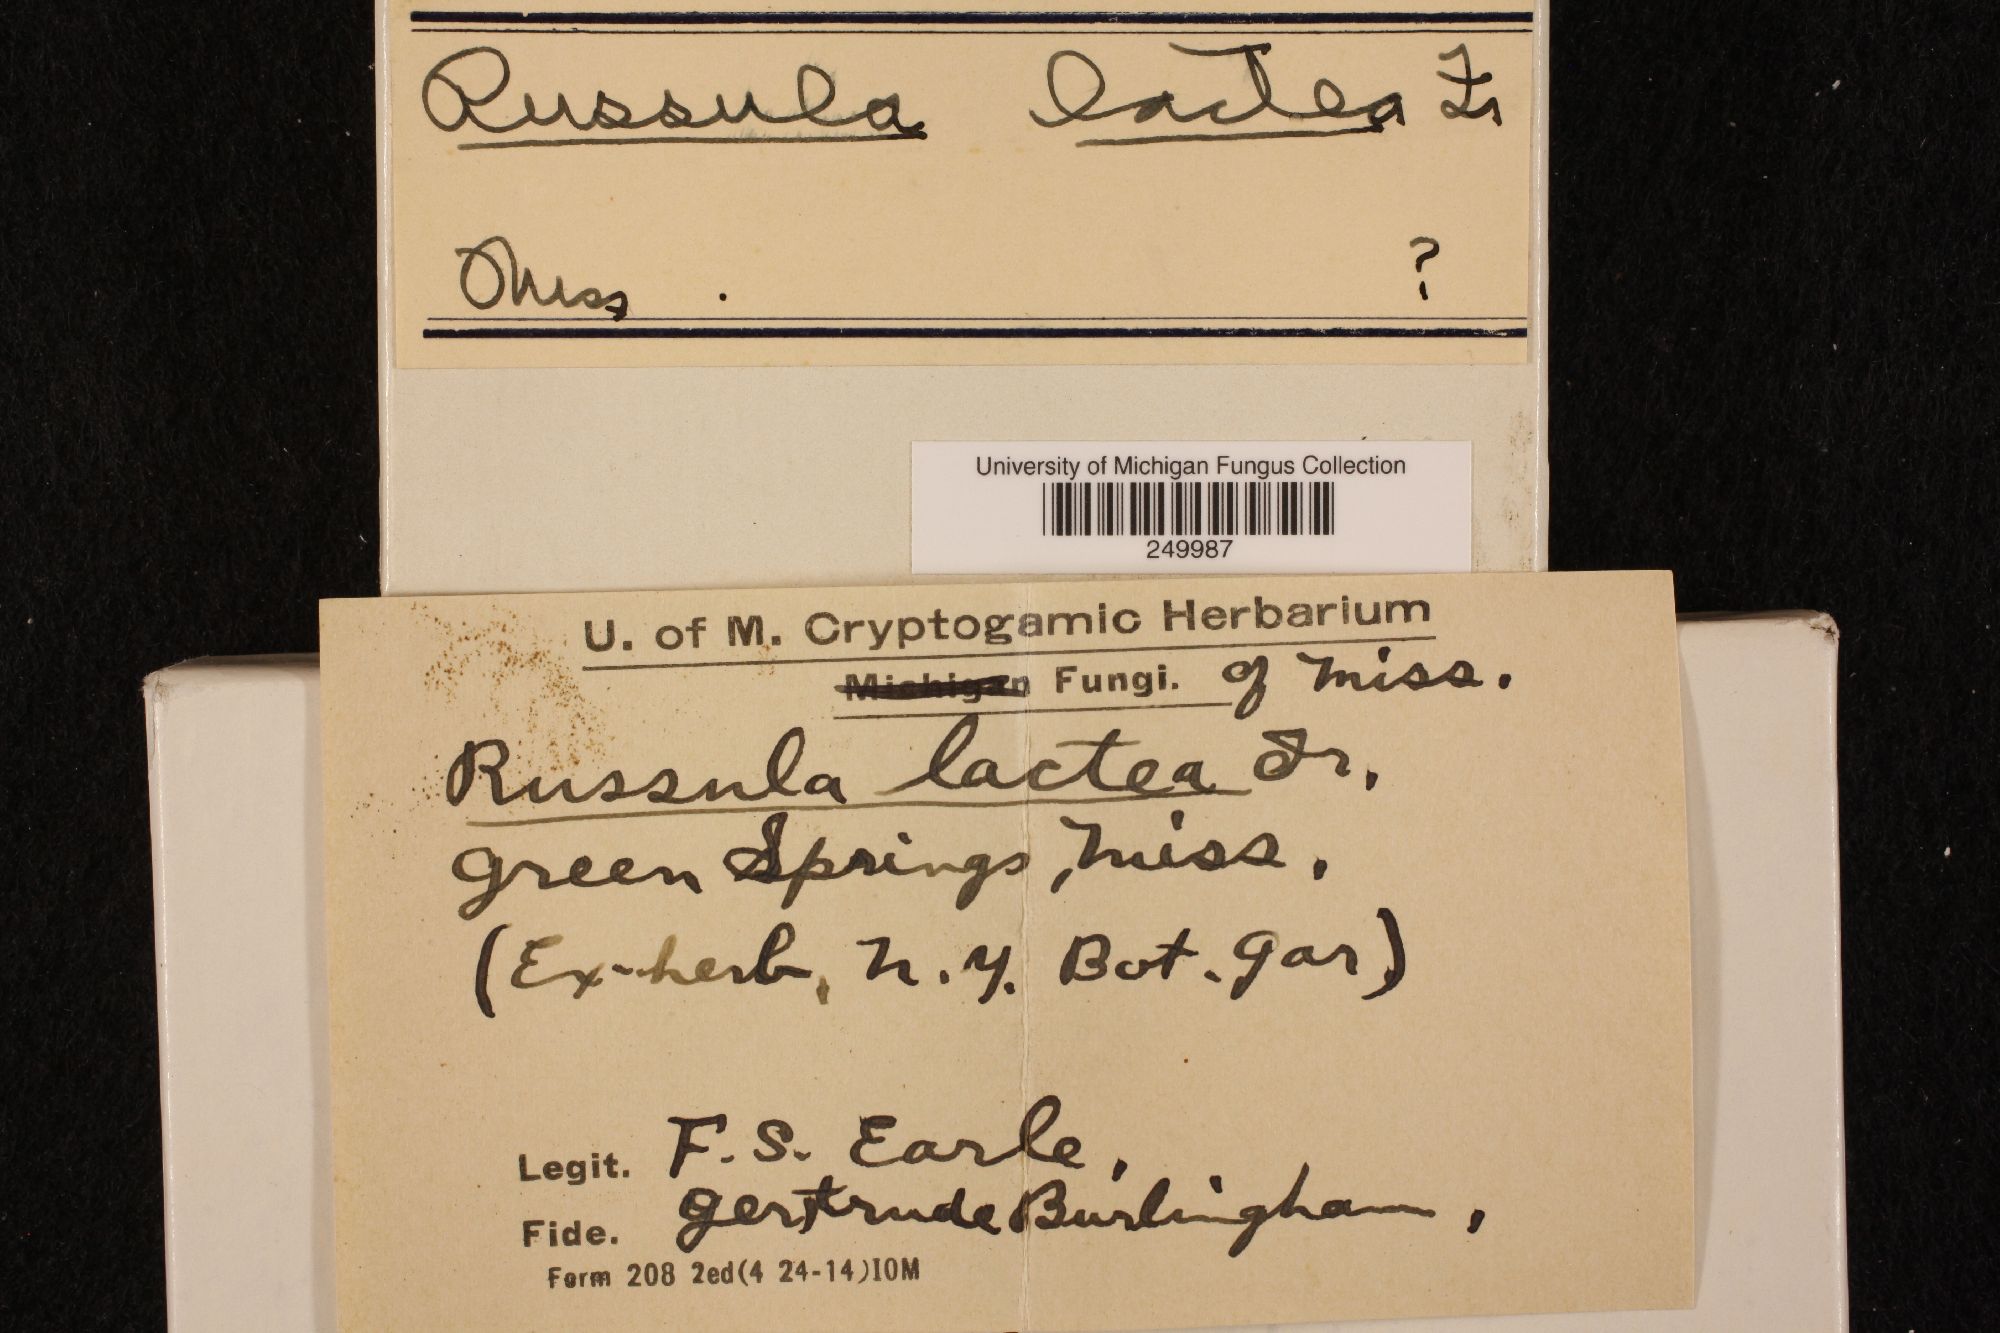 Russula lactea Fr
Miss. ?
University of Michigan Fungus Collection
249987
U. of M. Cryptogamic Herbarium
Michigan Fungi. of Miss.
Russula lactea Fr.
Green Springs, Miss.
(Ex-herb, N.Y. Bot. Gar.)
Legit. F.S. Earle,
Fide. Gertrude Burlingham,
Form 208 2ed(4 24-14)10M